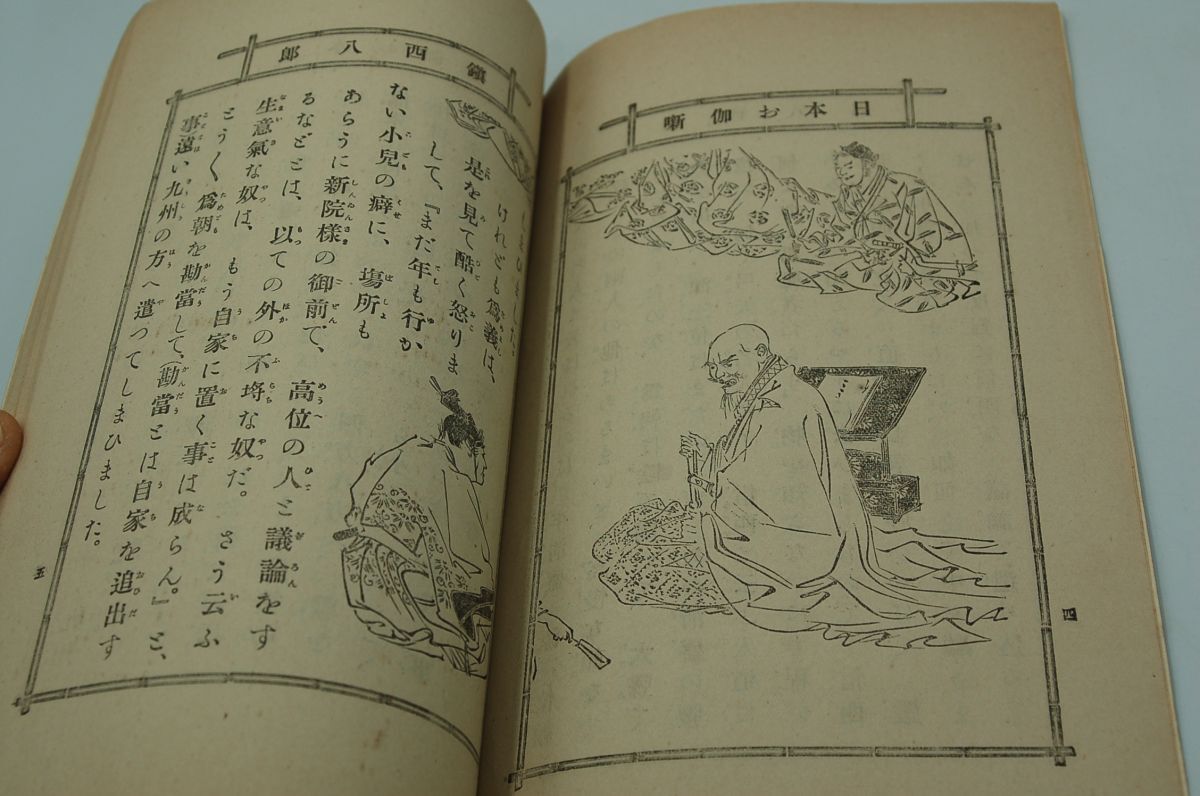 日本お伽噺
四
鎭西八郎
けれども爲義は、
是を見て酷く怒りま
して、『まだ年も行か
ない小兒の癖に、塲所も
あらうに新院樣の御前で、高位の人と議論をす
るなどとは、以ての外の不埓な奴だ。さう云ふ
生意氣な奴は、もう自家に置く事は成らん。』と、
とう〱爲朝を勘當して、(勘當とは自家を追出す
事遠い九州の方へ遣つてしまひました。
五